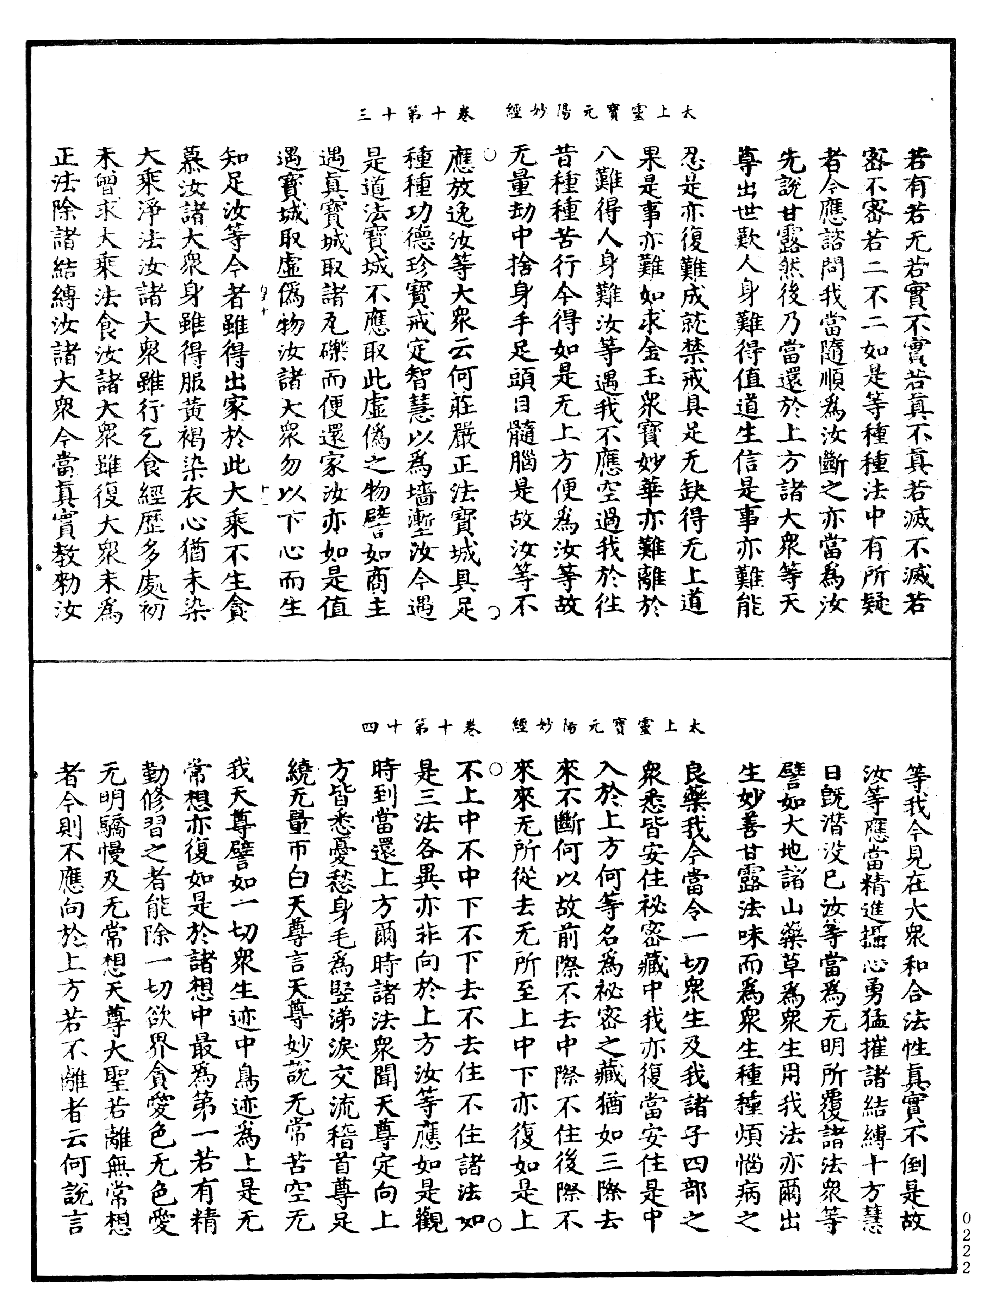 太上靈寶元陽妙經 卷十第十三
若有若无若實不實若真不真若滅不滅若
密不密若二不二如是等種種法中有所疑
者今應諮問我當隨順為汝斷之亦當為汝
先說甘露然後乃當還於上方諸大衆等天
尊出世歎人身難得值道生信是事亦難能
忍是亦復難成就禁戒具足无缺得无上道
果是事亦難如求金玉衆寶妙華亦難離於
八難得人身難汝等遇我不應空過我於往
昔種種苦行今得如是无上方便為汝等故
无量劫中捨身手足頭目髓腦是故汝等不
應放逸汝等大衆云何莊嚴正法寶城具足
種種功德珍寶戒定智慧以為墻壍汝今遇
是道法寶城不應取此虛偽之物譬如商主
遇真寶城取諸瓦礫而便還家汝亦如是值
遇寶城取虛偽物汝諸大衆勿以下心而生
知足汝等今者雖得出家於此大乘不生貪
慕汝諸大衆身雖得服黃褐染衣心猶未染
大乘淨法汝諸大衆雖行乞食經歷多處初
未曾求大乘法食汝諸大衆雖復大衆未為
正法除諸結縛汝諸大衆今當真實教勑汝
太上靈寶元陽妙經 卷十第十四
等我今見在大衆和合法性真實不倒是故
汝等應當精進攝心勇猛摧諸結縛十方慧
日旣潛没已汝等當為无明所覆諸法衆等
譬如大地諸山藥草為衆生用我法亦爾出
生妙善甘露法味而為衆生種種煩惱病之
良藥我今當令一切衆生及我諸子四部之
衆悉皆安住祕密藏中我亦復當安住是中
入於上方何等名為祕密之藏猶如三際去
來不斷何以故前際不去中際不住後際不
來來无所從去无所至上中下亦復如是上
不上中不中下不下去不去住不住諸法如
是三法各異亦非向於上方汝等應如是觀
時到當還上方爾時諸法衆聞天尊定向上
方皆悉憂愁身毛為竪涕淚交流稽首尊足
繞无量帀白天尊言天尊妙說无常苦空无
我天尊譬如一切衆生迹中鳥迹為上是无
常想亦復如是於諸想中最為第一若有精
勤修習之者能除一切欲界貪愛色无色愛
无明驕慢及无常想天尊大聖若離無常想
者今則不應向於上方若不離者云何說言
0222